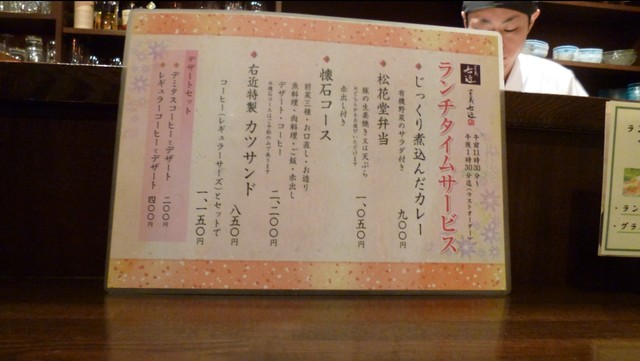 ランチタイムサービス
午前11時30分〜
午後1時30分迄(ラストオーダー)
右近
じっくり煮込んだカレー 九〇〇円
有機野菜のサラダ付き
松花堂弁当 一、〇五〇円
豚の生姜焼き又は天ぷら
赤出し付き
懐石コース 二、二〇〇円
前菜三種・お口直し・お造り
魚料理・肉料理・ご飯・赤出し
デザート・コーヒー
右近特製 カツサンド 八五〇円
コーヒー(レギュラーサーズ)とセットで 一、一五〇円
デザートセット
デミタスコーヒーとデザート 二〇〇円
レギュラーコーヒーとデザート 四〇〇円
・ラン
・グラ